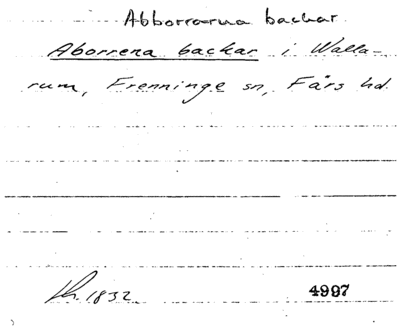 Abborrarna backar
Aborrena backar i Walla-
rum, Frenninge sn, Färs hd.
1832 4997